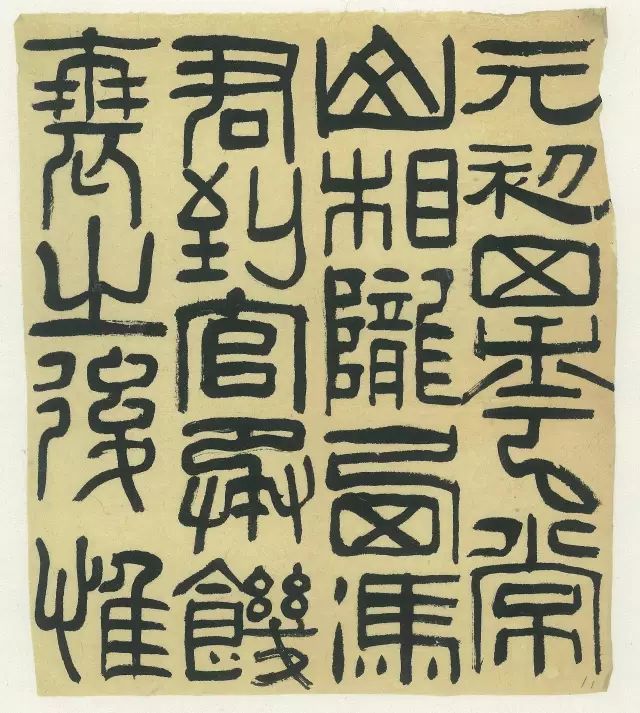 元初四年常
山相隴西馮
君到官承饑
衰之後惟